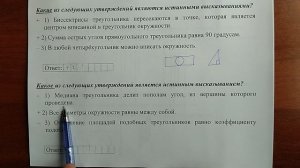 Какие из следующих утверждений являются истинными высказываниями?
- 1) Биссектрисы треугольника пересекаются в точке, которая является
центром вписанной в треугольник окружности.
+ 2) Сумма острых углов прямоугольного треугольника равна 90 градусам.
- 3) В любой четырёхугольник можно вписать окружность
Ответ:
Какие из следующих утверждений является истинным высказыванием?
- 1) Медиана треугольника делит пополам угол, из вершины которого
проведена.
+ 2) Все диаметры окружности равны между собой.
- 3) площадей подобных треугольников равно коэффициенту
Ответ: